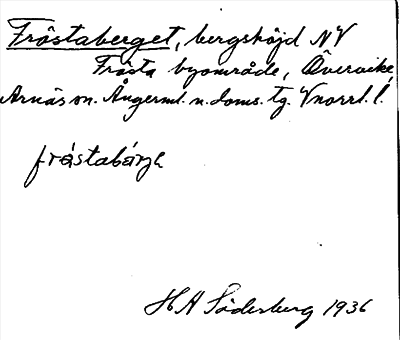 Fröstaberget, bergshöjd NV
Frösta byområde, Övervike,
Arnäs sn. Ångerml. n. doms. tg. Vnorrl. l.
fröstabärjə
H A Söderberg 1936